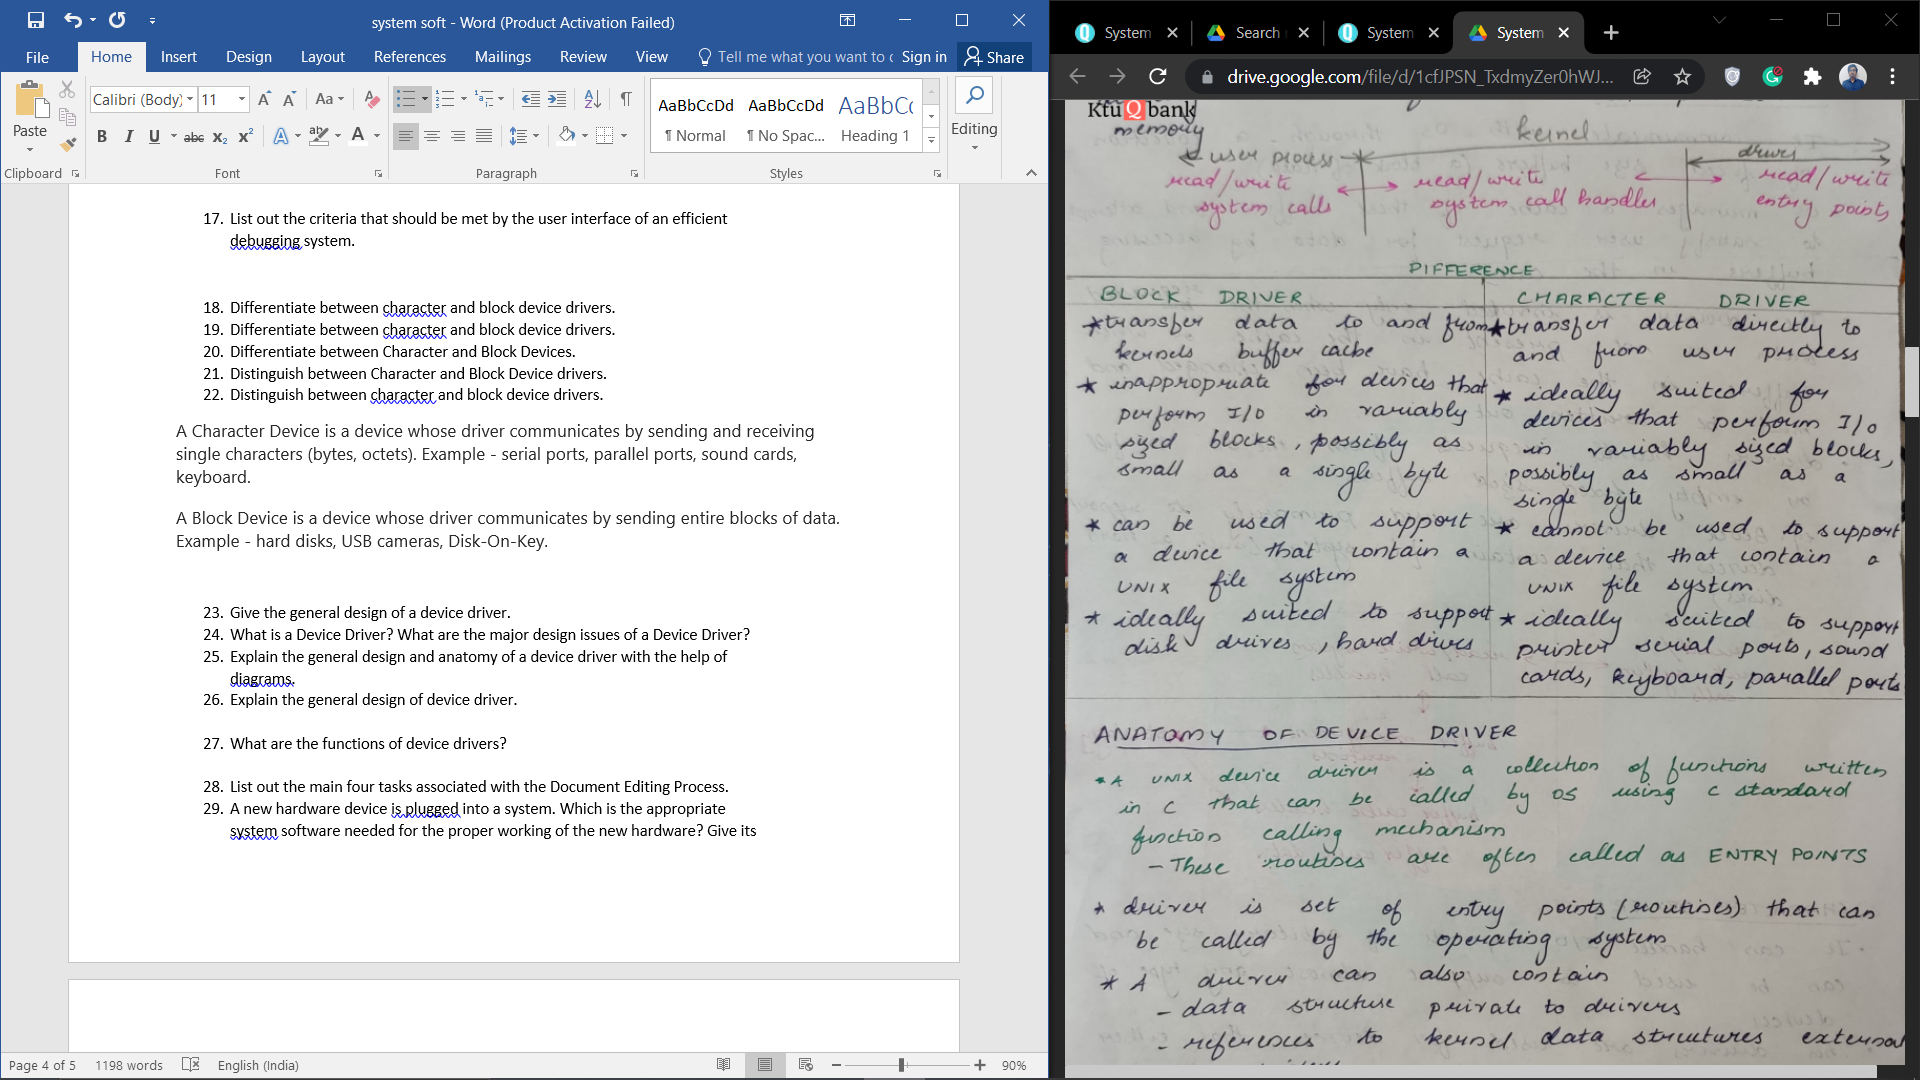 system soft - Word (Product Activation Failed)
File
Home
Insert
Design
Layout
References
Mailings
Review
View
Tell me what you want to
Sign in
Share
Paste
Calibri (Body)
11
Aa
AaBbCcDd
AaBbCcDd
AaBbCc
¶ Normal
¶ No Spac...
Heading 1
Editing
Clipboard
Font
Paragraph
Styles
17. List out the criteria that should be met by the user interface of an efficient
debugging system.
18. Differentiate between character and block device drivers.
19. Differentiate between character and block device drivers.
20. Differentiate between Character and Block Devices.
21. Distinguish between Character and Block Device drivers.
22. Distinguish between character and block device drivers.
A Character Device is a device whose driver communicates by sending and receiving
single characters (bytes, octets). Example - serial ports, parallel ports, sound cards,
keyboard.
A Block Device is a device whose driver communicates by sending entire blocks of data.
Example - hard disks, USB cameras, Disk-On-Key.
23. Give the general design of a device driver.
24. What is a Device Driver? What are the major design issues of a Device Driver?
25. Explain the general design and anatomy of a device driver with the help of
diagrams.
26. Explain the general design of device driver.
27. What are the functions of device drivers?
28. List out the main four tasks associated with the Document Editing Process.
29. A new hardware device is plugged into a system. Which is the appropriate
system software needed for the proper working of the new hardware? Give its
Page 4 of 5
1198 words
English (India)
90%
System
Search
System
System
drive.google.com/file/d/1cfJPSN_TxdmyZer0hWJ...
Ktu Q bank
memory
kernel
user process
drives
read/write
system calls
read/write
system call handler
read/write
entry points
DIFFERENCE
BLOCK DRIVER
CHARACTER DRIVER
* transfer data to and from
kernels buffer cache
* inappropriate for devices that
perform I/O in variably
sized blocks, possibly as
small as a single byte
* can be used to support
a device that contain a
UNIX file system
* ideally suited to support
disk drives, hard drives
* transfer data directly to
and from user process
* ideally suited for
devices that perform I/O
in variably sized blocks,
possibly as small as a
single byte
* cannot be used to support
a device that contain a
UNIX file system
* ideally suited to support
printer serial ports, sound
cards, keyboard, parallel ports
ANATOMY OF DEVICE DRIVER
* A UNIX device driver is a collection of functions written
in C that can be called by OS using C standard
function calling mechanism
- These routines are often called as ENTRY POINTS
* driver is set of entry points (routines) that can
be called by the operating system
* A driver can also contain
- data structure private to drivers
- references to kernel data structures external